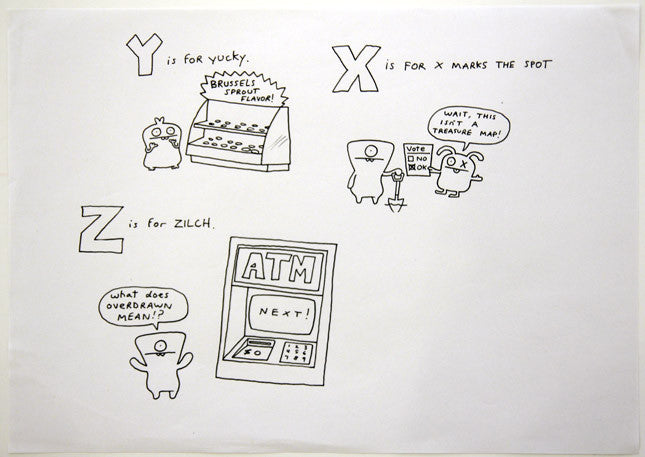 Y is for YUCKY.
BRUSSELS
SPROUT
FLAVOR!
X is FOR X MARKS THE SPOT
WAIT, THIS
ISN'T A
TREASURE MAP!
Vote
NO
OK
X
Z is for ZILCH.
what does
OVERDRAWN
MEAN!?
ATM
NEXT!
$0
1 2 3
4 5 6
7 8 9